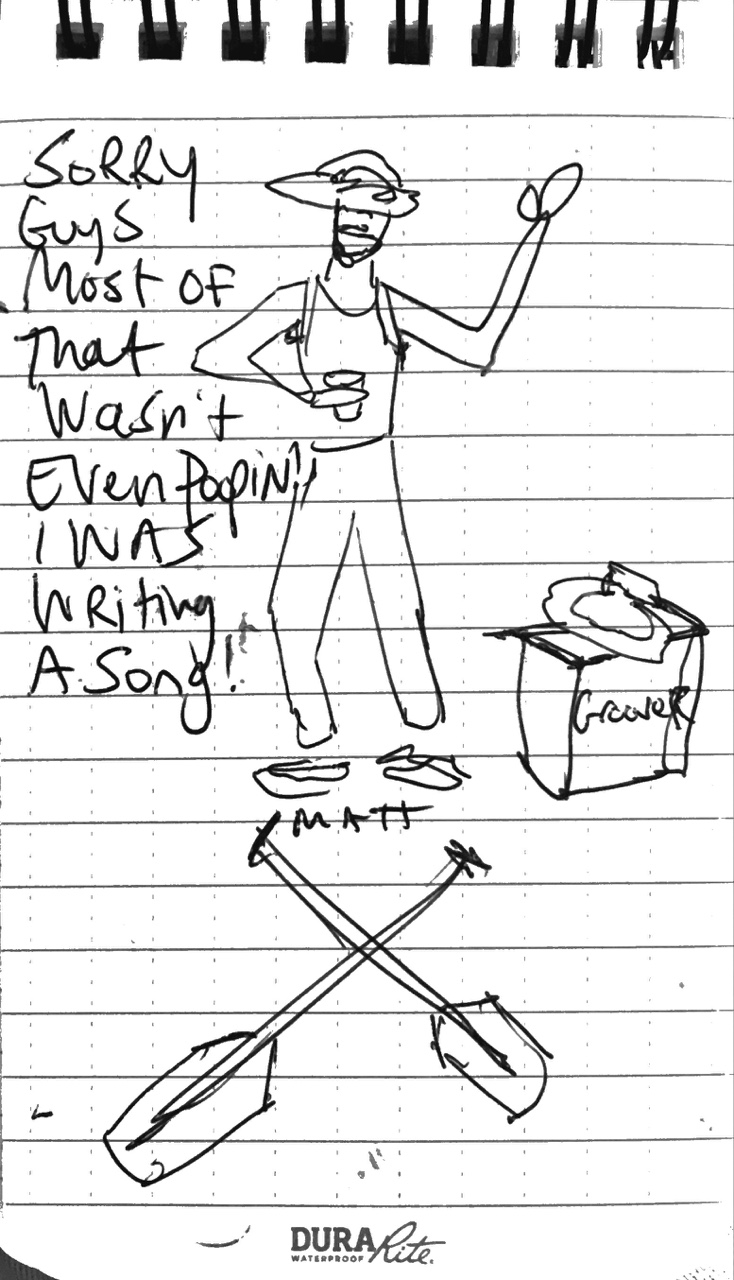 SORRY
Guys
Most OF
That
Wasn't
Even Poopin'!
I WAS
Writing
A Song!
GrooveR
MATT
DURARite
WATERPROOF